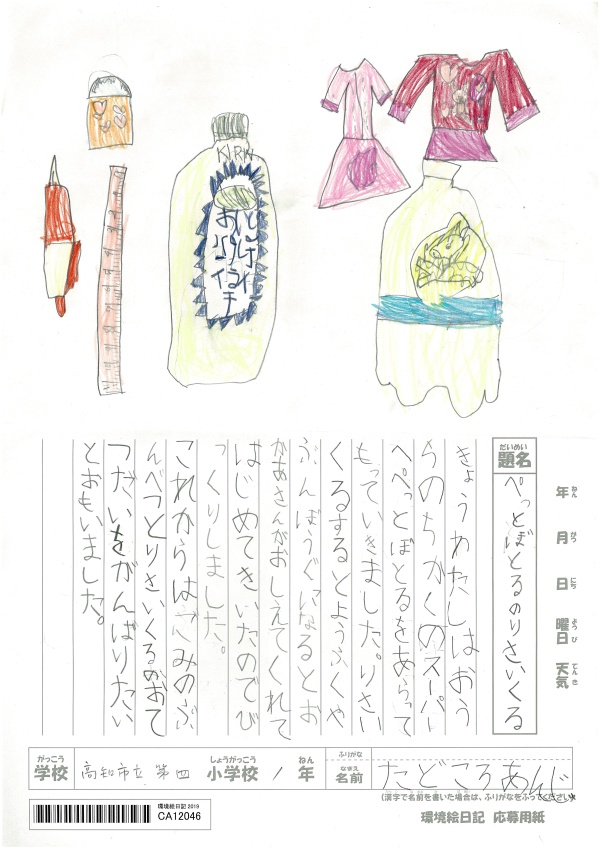 KIRIN
だいめい
題名
ぺっとぼとるのりさいくる
ねん
年
がつ
月
にち
日
ようび
曜日
てんき
天気
きょうわたしはおう
ちのちかくのスーパー
へぺっとぼとるをあらって
もっていきました。りさい
くるするとようふくや
ぶんぼうぐになるとお
かあさんがおしえてくれて
はじめてきいたのでび
っくりしました。
これからはごみのぶ
んべつとりさいくるのおて
つだいをがんばりたい
とおもいました。
がっこう
学校
高知市立 第四
しょうがっこう
小学校
1
ねん
年
ふりがな
なまえ
名前
たどころあんじ
(漢字で名前を書いた場合は、ふりがなをふってください)
環境絵日記 2019
CA12046
環境絵日記 応募用紙